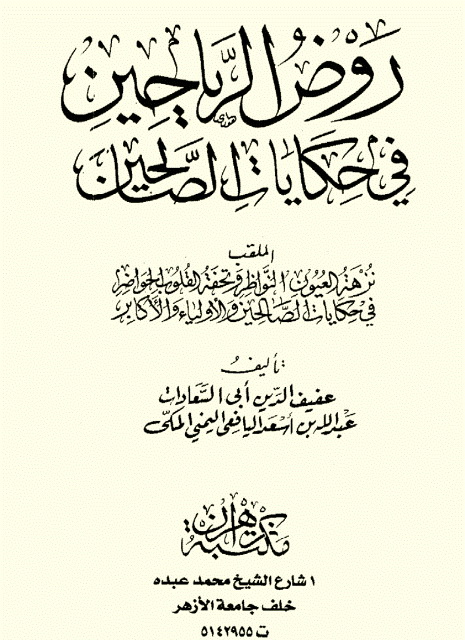 رَوْضُ الرَّيَاحِينِ
فِي حِكَايَاتِ الصَّالِحِينَ
الملقب
نُزهَةُ العُيُونِ النَّوَاظِرِ وَتُحْفَةُ القُلُوبِ الحَوَاضِرِ
فِي حِكَايَاتِ الصَّالِحِينَ وَالأَوْلِيَاءِ وَالأَكَابِر
تأليفُ
عفيف الدين أبى السَّعَادات
عَبْدالله بن أسْعَد اليافعى اليمنى المكىّ
مكتبة زهران
١ شارع الشيخ محمد عبده
خلف جامعة الأزهر
ت ٥١٤٢٩٥٥